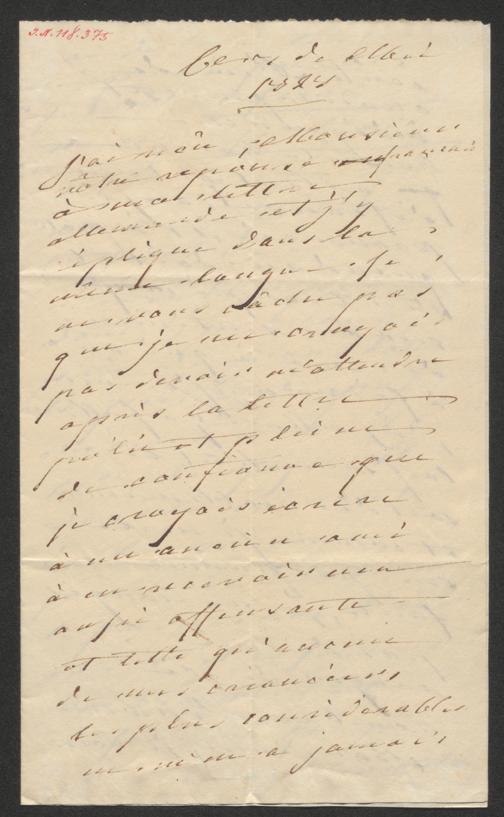 I.N. 118.375
Ce  de Mai
182
J'ai reçu, Monsieur
vôtre réponse en françois
à ma lettre
allemande et j'y
réplique dans la
même langue. Je
ne vous câche pas
que je ne croyois
pas devoir m'attendre
après la lettre
polie et pleine
de confiance que
je croyois écrire
à un ancien ami
à en recevoir une
aussi offensante
et telle qu'aucun
de mes créanciers
les plus considérables
ne m'en a jamais